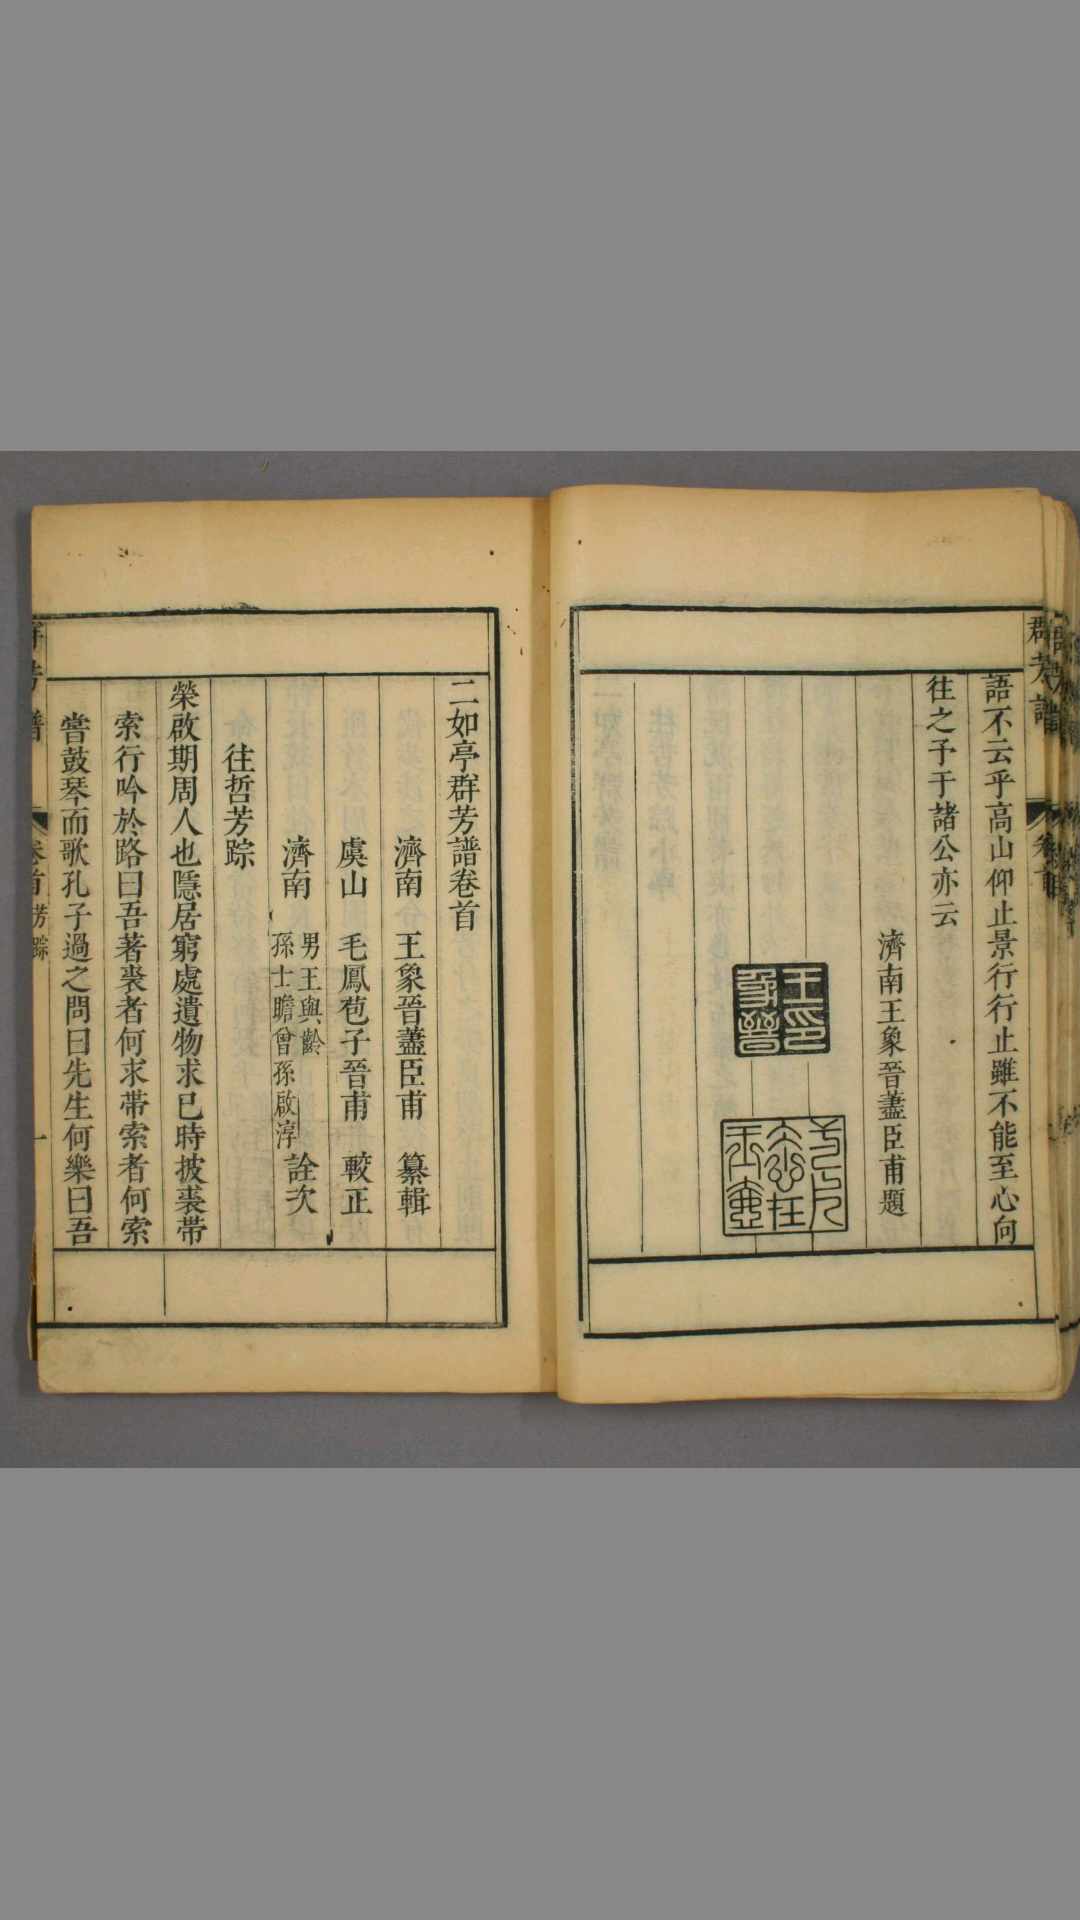 語不云乎高山仰止景行行止雖不能至心向
往之予于諸公亦云
濟南王象晉藎臣甫題
王印
象晉
二如亭群芳譜卷首
濟南 王象晉藎臣甫 纂輯
虞山 毛鳳苞子晉甫 較正
濟南 男王與齡 孫士瞻曾孫啟淳 詮次
往哲芳踪
榮啟期周人也隱居窮處遺物求已時披裘帶
索行吟於路曰吾著裘者何求帶索者何索
嘗鼓琴而歌孔子過之問曰先生何樂曰吾
卷首 芳踪 一